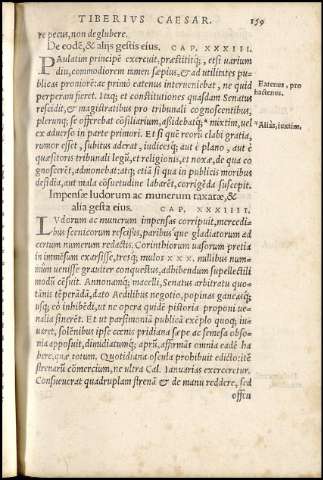 TIBERIVS CAESAR. 159
re pecus, non deglubere.
De eodē, & alijs gestis eius. CAP. XXXIII.
PAulatim principē exercuit, præstititq;, etsi uarium
diu, commodiorem tamen sæpius, & ad utilitates pu-
blicas proniorē: ac primò eatenus interueniebat, ne quid
perperam fieret. Itaq; et constitutiones quasdam Senatus
rescidit, & magistratibus pro tribunali cognoscentibus,
plerunq; se offerebat cōsiliarium, assidebatq; mixtim, uel
ex aduerso in parte primori. Et si quē reorū elabi gratia,
rumor esset, subitus aderat, iudicesq; aut è plano, aut è
quæsitoris tribunali legū, et religionis, et noxæ, de qua co
gnoscerēt, admonebat: atq; etiā si qua in publicis moribus
desidia, aut mala cōsuetudine labarēt, corrigēda suscepit.
Eatenus, pro
hactenus.
Aliàs, iuxtim.
Impensæ ludorum ac munerum taxatæ, &
alia gesta eius. CAP. XXXIIII.
LVdorum ac munerum impensas corripuit, mercedi-
bus scenicorum rescissis, paribusq; gladiatorum ad
certum numerum redactis. Corinthiorum uasorum pretia
in immēsum exarsisse, tresq; mulos xxx. millibus num-
mûm uenisse grauiter conquestus, adhibendum supellectili
modū cēsuit. Annonamq; macelli, Senatus arbitratu quo-
tānis tēperādā, dato Aedilibus negotio, popinas ganeasq;
usq; eò inhibēdi, ut ne opera quidē pistoria proponi ue-
nalia sinerēt. Et ut parsimoniā publicā exēplo quoq; iu-
uaret, solēnibus ipse cœnis pridiana sæpe ac semesa obso-
nia apposuit, dimidiatumq; aprū, affirmās omnia eadē ha
bere, quæ totum. Quotidiana oscula prohibuit edicto: itē
strenarū cōmercium, ne ultra Cal. Ianuarias exerceretur.
Consueuerat quadruplam strenā & de manu reddere, sed
offen